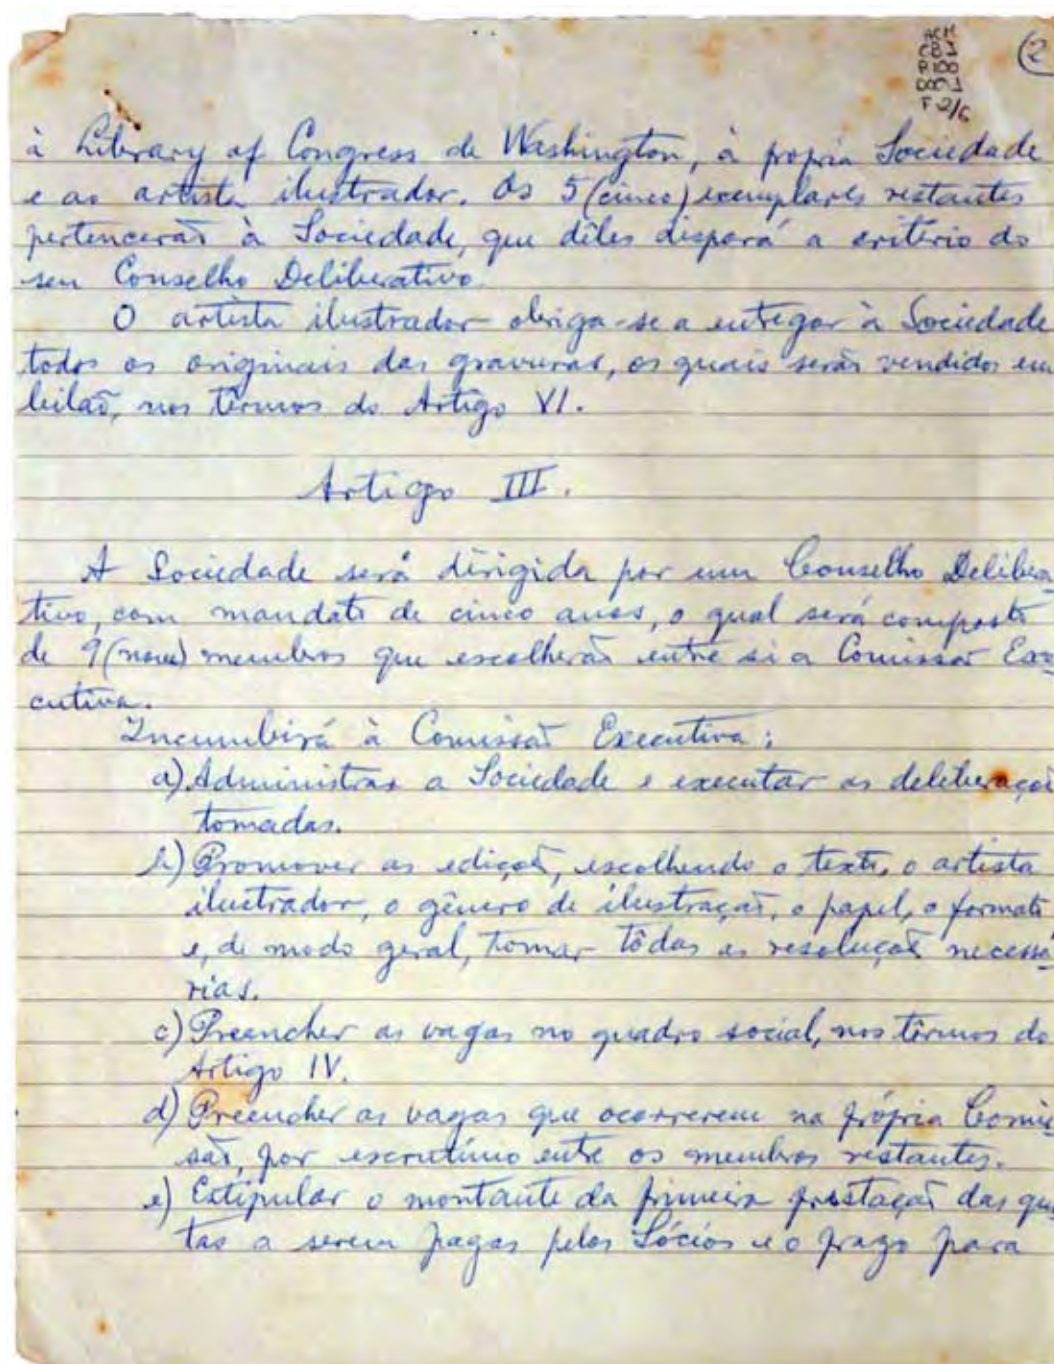 ACM
CB1
P100
D001
F 2/6
2
à Library of Congress de Washington, à propria Sociedade
e ao artista ilustrador. Os 5 (cinco) exemplares restantes
pertencerão à Sociedade, que dêles disporá a critério do
seu Conselho Deliberativo.
O artista ilustrador obriga-se a entregar à Sociedade
todos os originais das gravuras, os quais serão vendidos em
leilão, nos têrmos do Artigo VI.
Artigo III.
A Sociedade será dirigida por um Conselho Delibera
tivo, com mandato de cinco anos, o qual será composto
de 9 (nove) membros que escolherão entre si a Comissão Exe
cutiva.
Incumbirá à Comissão Executiva:
a) Administrar a Sociedade e executar as deliberaçoẽ
tomadas.
b) Promover as ediçoẽs, escolhendo o texto, o artista
ilustrador, o gênero de ilustração, o papel, o formato
e, de modo geral, tomar tôdas as resoluçoẽs necessa
rias.
c) Preencher as vagas no quadro social, nos têrmos do
Artigo IV.
d) Preencher as vagas que ocorrerem na própria Comis
são, por escrutínio entre os membros restantes.
e) Estipular o montante da primeira prestação das quo
tas a serem pagas pelos Sócios e o prazo para